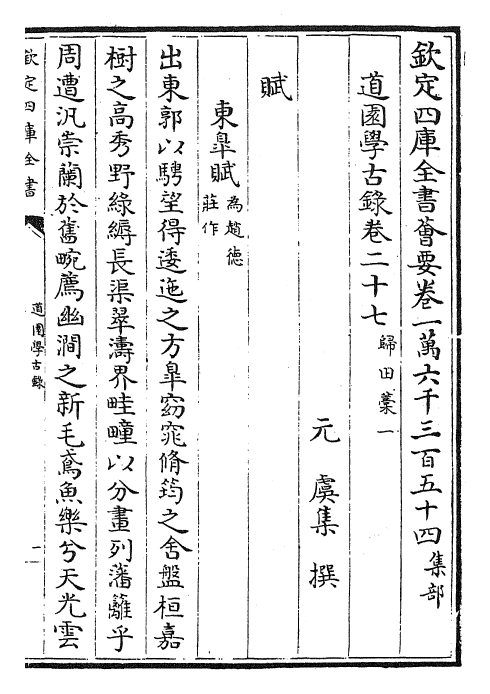 欽定四庫全書薈要卷一萬六千三百五十四集部
道園學古錄卷二十七歸田藁一
元 虞集 撰
賦
東皐賦為趙德莊作
出東郭以騁望得逶迤之方皐窈窕脩筠之舍盤桓嘉
樹之高秀野綠縟長渠翠濤界畦疃以分畫列藩籬乎
周遭汎崇蘭於舊畹薦幽澗之新毛鳶魚樂兮天光雲
欽定四庫全書
道園學古錄
一